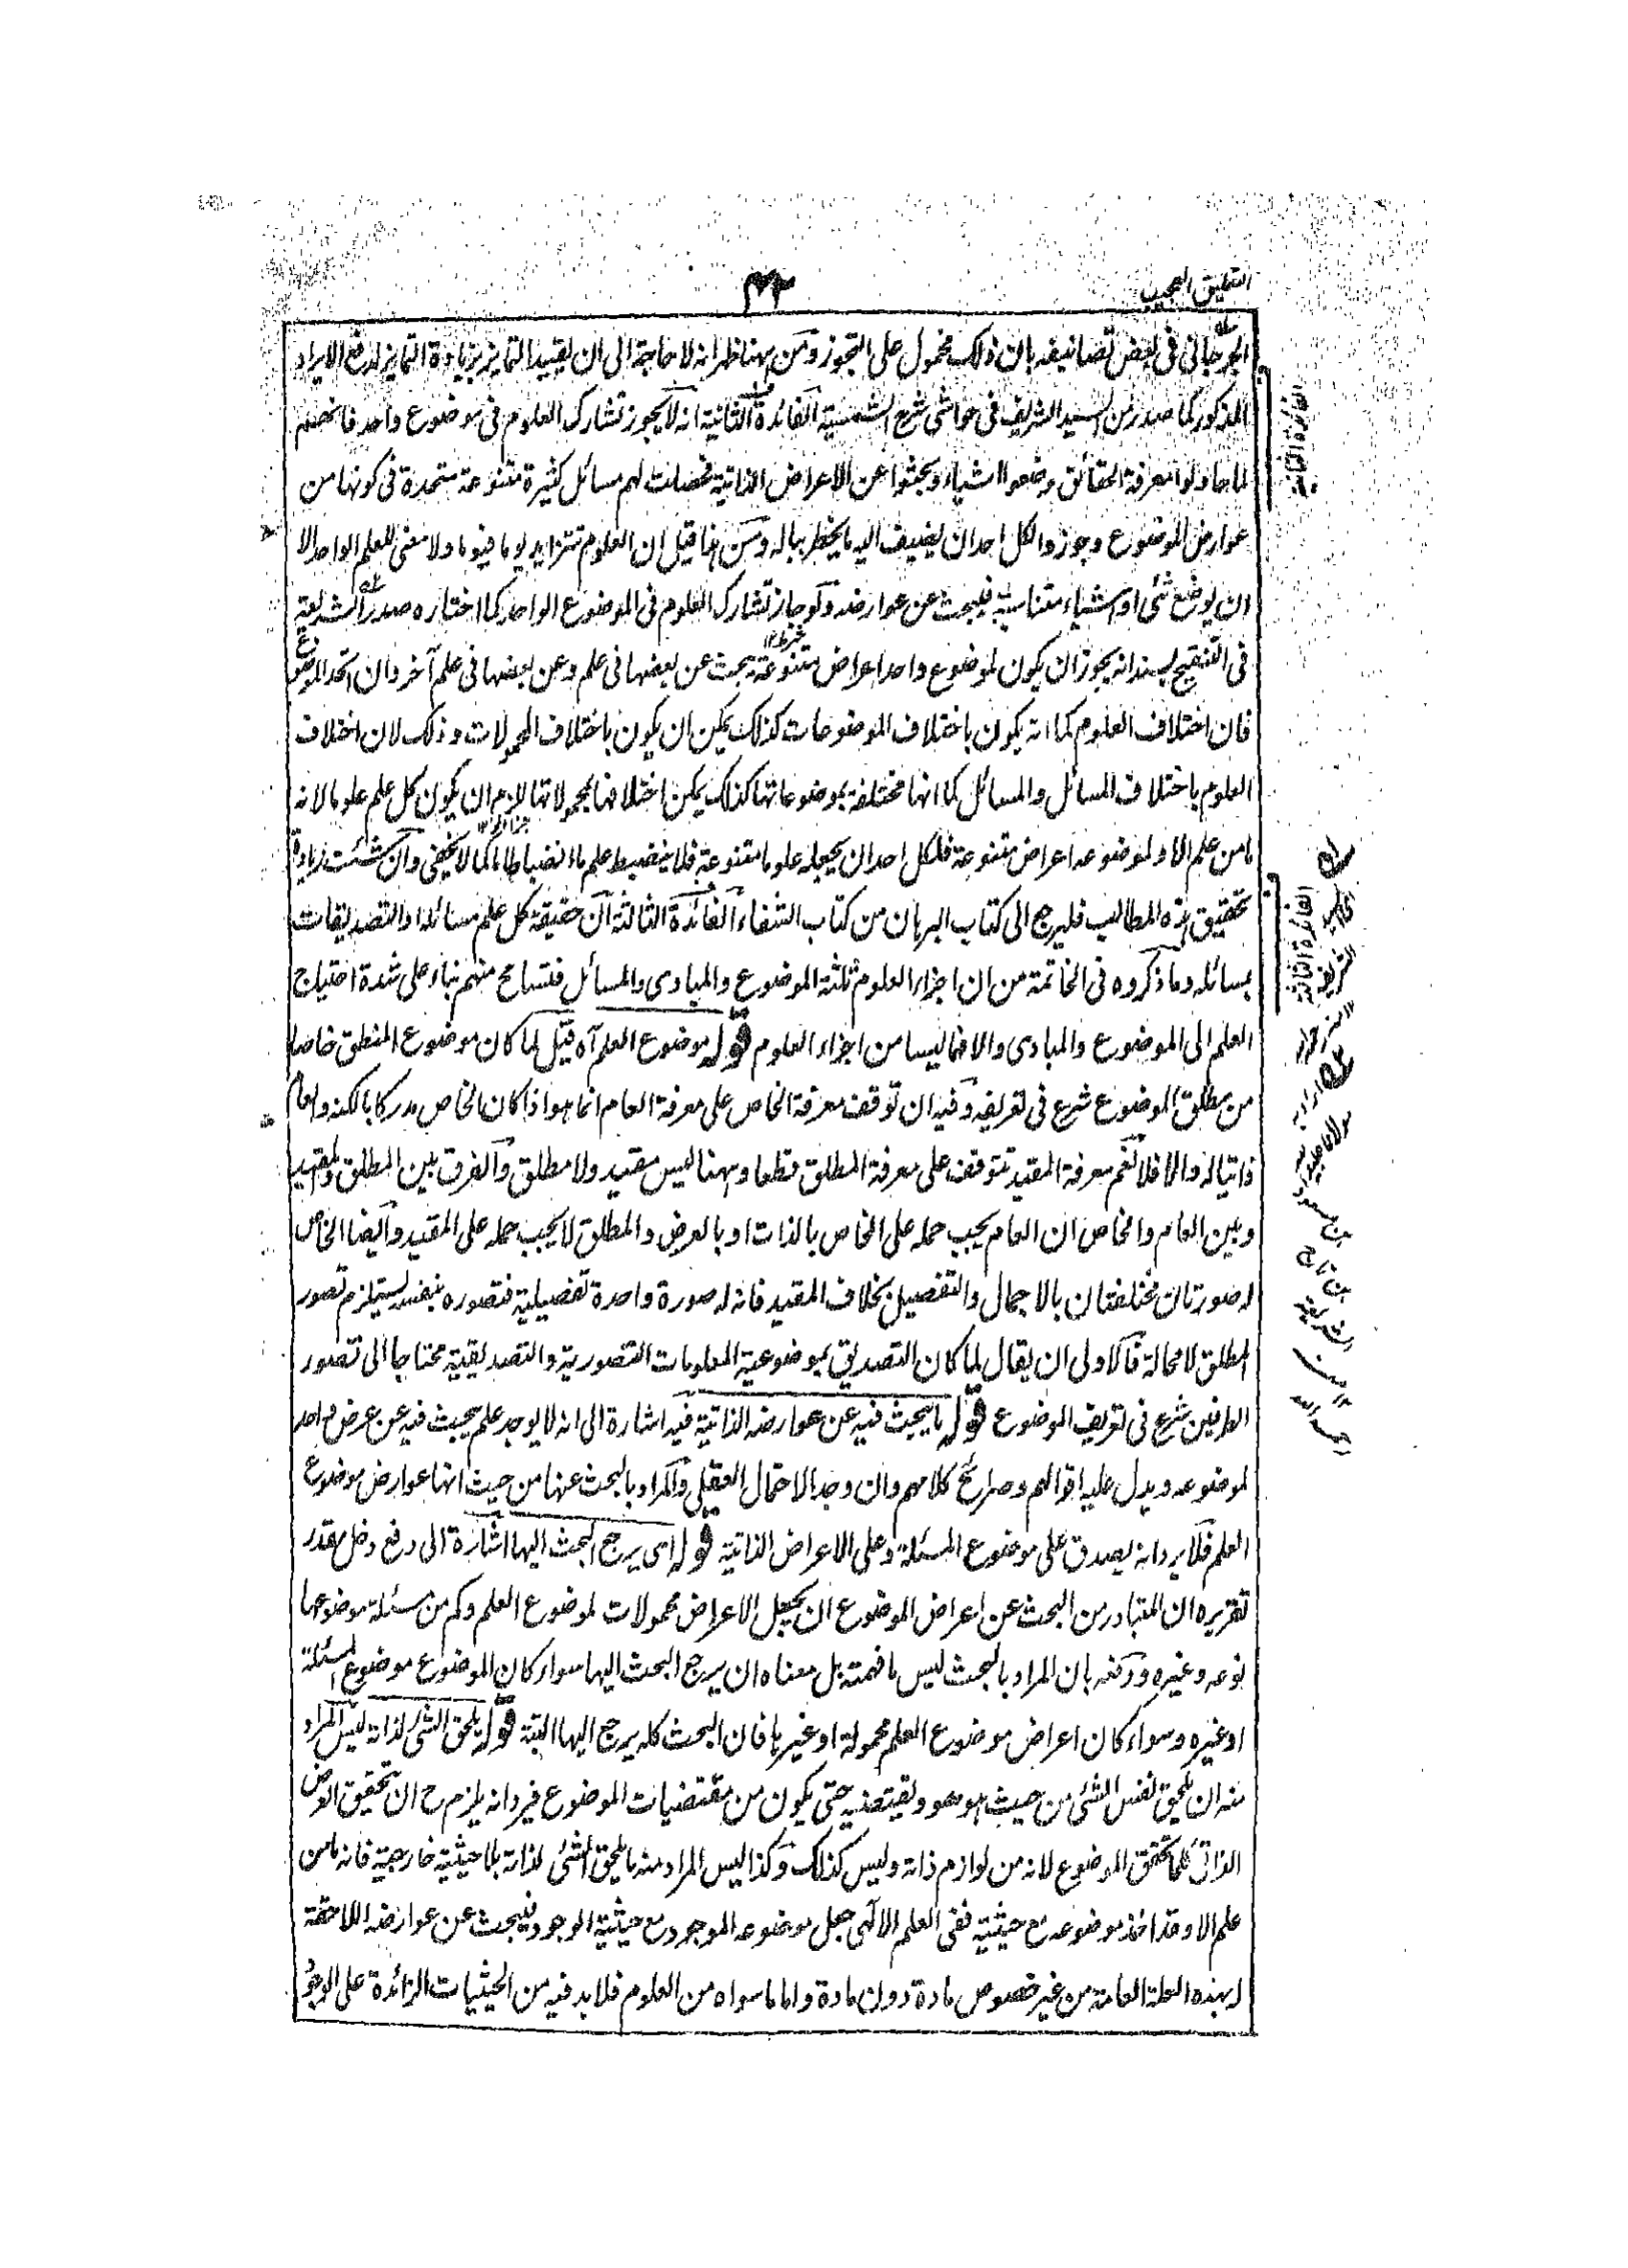 التعليق العجيب
٢٣
الجرجاني في بعض تصانيفه بان ذلك محمول على التجوز ومن ههنا ظهر انه لا حاجة الى ان يقيد التمايز بزيادة التمايز لدفع الايراد
المذكور كما صدر من السيد الشريف في حواشي شرح الشمسية الفائدة الثانية انه لا يجوز تشارك العلوم في موضوع واحد فانهم
لما حاولوا معرفة الحقائق وضعوا اشياء وبحثوا عن الاعراض الذاتية فحصلت لهم مسائل كثيرة متنوعة متحدة في كونها من
عوارض الموضوع وجوزوا لكل احد ان يضيف اليه ما يخطر بباله ومن هنا قيل ان العلوم تتزايد يوما فيوما ولا معنى للعلم الواحد الا
ان يوضع شئ او اشياء متناسبة فيبحث عن عوارضه ولو جاز تشارك العلوم في الموضوع الواحد كما اختاره صدر الشريعة
في التنقيح بسند انه يجوز ان يكون لموضوع واحد اعراض متنوعة يبحث عن بعضها في علم وعن بعضها في علم آخر وان اتحد الموضوع
فان اختلاف العلوم كما انه يكون باختلاف الموضوعات كذلك يمكن ان يكون باختلاف المحمولات وذلك لان اختلاف
العلوم باختلاف المسائل والمسائل كما انها مختلفة بموضوعاتها كذلك يمكن اختلافها بمحمولاتها لزم ان يكون كل علم علوما لانه
ما من علم الا و لموضوعه اعراض متنوعة فلكل احد ان يجعله علوما متنوعة فلا ينضبط علم ما انضباطا ما كما لا يخفى وان شئت زيادة
تحقيق هذه المطالب فليرجع الى كتاب البرهان من كتاب الشفاء الفائدة الثالثة ان حقيقة كل علم مسائله او التصديقات
بمسائله وما ذكروه في الخاتمة من ان اجزاء العلوم ثلثة الموضوع والمبادى والمسائل فتسامح منهم بناء على شدة احتياج
العلم الى الموضوع والمبادى والا فهما ليسا من اجزاء العلوم قوله موضوع العلم آه قيل لما كان موضوع المنطق خاصا
من مطلق الموضوع شرع في تعريفه وفيه ان توقف معرفة الخاص على معرفة العام انما هو اذا كان الخاص مدركا بالكنه والعام
ذاتيا له والا فلا نعم معرفة المقيد تتوقف على معرفة المطلق قطعا وههنا ليس مقيد ولا مطلق والفرق بين المطلق والمقيد
وبين العام والخاص ان العام يجب حمله على الخاص بالذات او بالعرض والمطلق لا يجب حمله على المقيد وايضا الخاص
له صورتان مختلفتان بالاجمال والتفصيل بخلاف المقيد فانه له صورة واحدة تفصيلية فتصوره بنفسه يستلزم تصور
المطلق لا محالة فالاولى ان يقال لما كان التصديق بموضوعية المعلومات التصورية والتصديقية محتاجا الى تصور
الطرفين شرع في تعريف الموضوع قوله ما يبحث فيه عن عوارضه الذاتية فيه اشارة الى انه لا يوجد علم يبحث فيه عن عرض واحد
لموضوعه ويدل عليه اقوالهم وصرائح كلامهم وان وجد الاحتمال العقلي والمراد بالبحث عنها من حيث انها عوارض موضوع
العلم فلا يرد انه يصدق على موضوع المسئلة وعلى الاعراض الذاتية قوله اى يرجع البحث اليها اشارة الى دفع دخل مقدر
تقريره ان المتبادر من البحث عن اعراض الموضوع ان يجعل الاعراض محمولات لموضوع العلم وكم من مسئلة موضوعها
نوعه وغيره ودفعه بان المراد بالبحث ليس ما فهمته بل معناه ان يرجع البحث اليها سواء كان الموضوع موضوع المسئلة
او غيره وسواء كان اعراض موضوع العلم محمولة او غيرها فان البحث كله يرجع اليها البتة قوله يلحق الشئ لذاته ليس المراد
منه ان يلحق نفس الشئ من حيث هو هو ويقتضيه حتى يكون من مقتضيات الموضوع فيرد انه يلزم ح ان تحقيق العرض
الذاتى كلما تحقق الموضوع لانه من لوازم ذاته وليس كذلك وكذا ليس المراد منه ما يلحق الشئ لذاته بلا حيثية خارجية فانه ما من
علم الا وقد اخذ موضوعه مع حيثية ففى العلم الالهى جعل موضوعه الموجود مع حيثية الوجود فيبحث عن عوارضه اللاحقة
له بهذه العلة العامة من غير خصوص مادة دون مادة واما ما سواه من العلوم فلا بد فيه من الحيثيات الزائدة على الوجود
الفائدة الثانية
الفائدة الثالثة